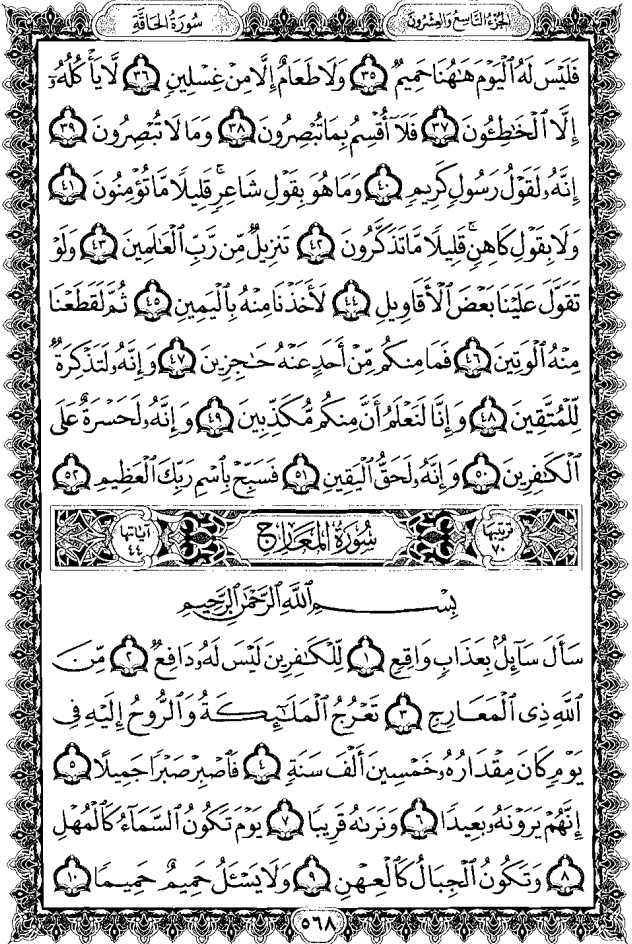 الجُزْءُ التَّاسِعُ وَالعِشْرُونَ
سُورَةُ الحَاقَّةِ
فَلَيْسَ لَهُ ٱلْيَوْمَ هَٰهُنَا حَمِيمٌ ٣٥ وَلَا طَعَامٌ إِلَّا مِنْ غِسْلِينٍ ٣٦ لَّا يَأْكُلُهُۥٓ
إِلَّا ٱلْخَٰطِـُٔونَ ٣٧ فَلَآ أُقْسِمُ بِمَا تُبْصِرُونَ ٣٨ وَمَا لَا تُبْصِرُونَ ٣٩
إِنَّهُۥ لَقَوْلُ رَسُولٍ كَرِيمٍ ٤٠ وَمَا هُوَ بِقَوْلِ شَاعِرٍ ۚ قَلِيلًا مَّا تُؤْمِنُونَ ٤١
وَلَا بِقَوْلِ كَاهِنٍ ۚ قَلِيلًا مَّا تَذَكَّرُونَ ٤٢ تَنزِيلٌ مِّن رَّبِّ ٱلْعَٰلَمِينَ ٤٣ وَلَوْ
تَقَوَّلَ عَلَيْنَا بَعْضَ ٱلْأَقَاوِيلِ ٤٤ لَأَخَذْنَا مِنْهُ بِٱلْيَمِينِ ٤٥ ثُمَّ لَقَطَعْنَا
مِنْهُ ٱلْوَتِينَ ٤٦ فَمَا مِنكُم مِّنْ أَحَدٍ عَنْهُ حَٰجِزِينَ ٤٧ وَإِنَّهُۥ لَتَذْكِرَةٌ
لِّلْمُتَّقِينَ ٤٨ وَإِنَّا لَنَعْلَمُ أَنَّ مِنكُم مُّكَذِّبِينَ ٤٩ وَإِنَّهُۥ لَحَسْرَةٌ عَلَى
ٱلْكَٰفِرِينَ ٥٠ وَإِنَّهُۥ لَحَقُّ ٱلْيَقِينِ ٥١ فَسَبِّحْ بِٱسْمِ رَبِّكَ ٱلْعَظِيمِ ٥٢
ترتيبها ٧٠ سُورَةُ المَعَارِجِ آياتها ٤٤
بِسْمِ ٱللَّهِ ٱلرَّحْمَٰنِ ٱلرَّحِيمِ
سَأَلَ سَآئِلٌۢ بِعَذَابٍ وَاقِعٍ ١ لِّلْكَٰفِرِينَ لَيْسَ لَهُۥ دَافِعٌ ٢ مِّنَ
ٱللَّهِ ذِى ٱلْمَعَارِجِ ٣ تَعْرُجُ ٱلْمَلَٰٓئِكَةُ وَٱلرُّوحُ إِلَيْهِ فِى
يَوْمٍ كَانَ مِقْدَارُهُۥ خَمْسِينَ أَلْفَ سَنَةٍ ٤ فَٱصْبِرْ صَبْرًا جَمِيلًا ٥
إِنَّهُمْ يَرَوْنَهُۥ بَعِيدًا ٦ وَنَرَىٰهُ قَرِيبًا ٧ يَوْمَ تَكُونُ ٱلسَّمَآءُ كَٱلْمُهْلِ
٨ وَتَكُونُ ٱلْجِبَالُ كَٱلْعِهْنِ ٩ وَلَا يَسْـَٔلُ حَمِيمٌ حَمِيمًا ١٠
٥٦٨